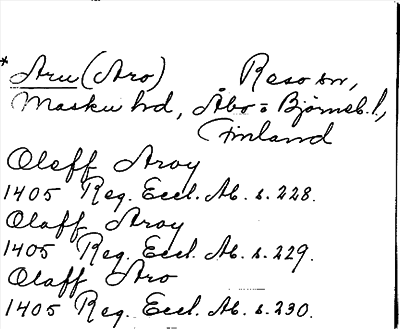 * Aru (Aro) Reso sn,
Masku hd, Åbo o Björneb. l,
Finland
Oleff Aroy
1405 Reg. Eccl. Ab. s. 228.
Olaff Aroy
1405 Reg. Eccl. Ab. s. 229.
Olaff Aro
1405 Reg. Eccl. Ab. s. 230.